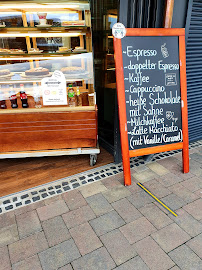 -Espresso
-doppelter Espresso
-Kaffee
-Cappuccino
-heiße Schokolade
mit Sahne
-Milchkaffee
-Latte Macchiato
(mit Vanille/Karamel)